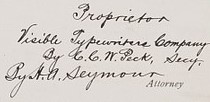 Proprietor
Visible Typewriter Company
By C. C. W. Peck, Secy.
By H. A. Seymour
Attorney